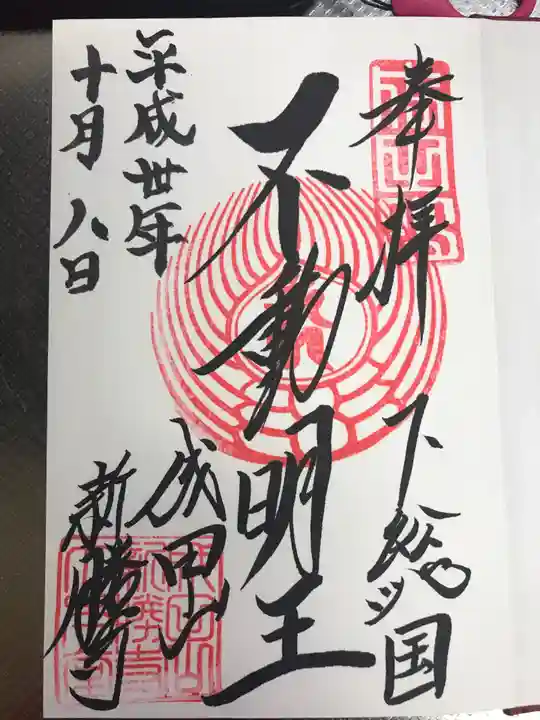 奉拝
下総ツ国
不動明王
成田山
新勝寺
平成卅年
十月八日